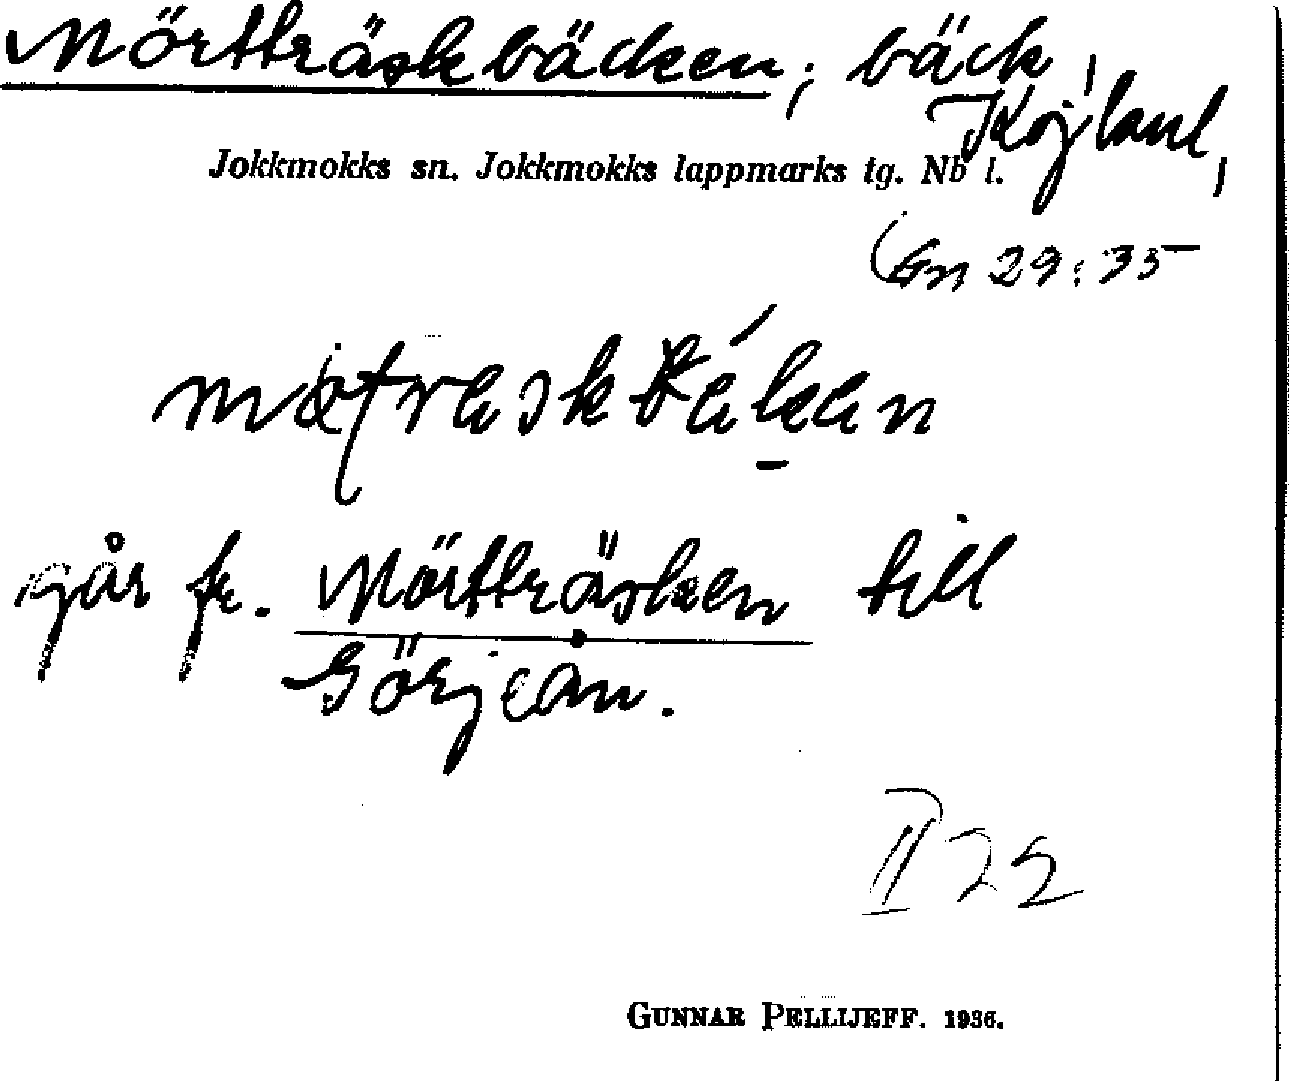 Mörtträskbäcken, bäck,
Jokkmokks sn. Jokkmokks lappmarks tg. Nb l.
Gn 29:35
går fr. Mörtträsken till
Görjeån.
II 22
GUNNAR PELLIJEFF. 1936.